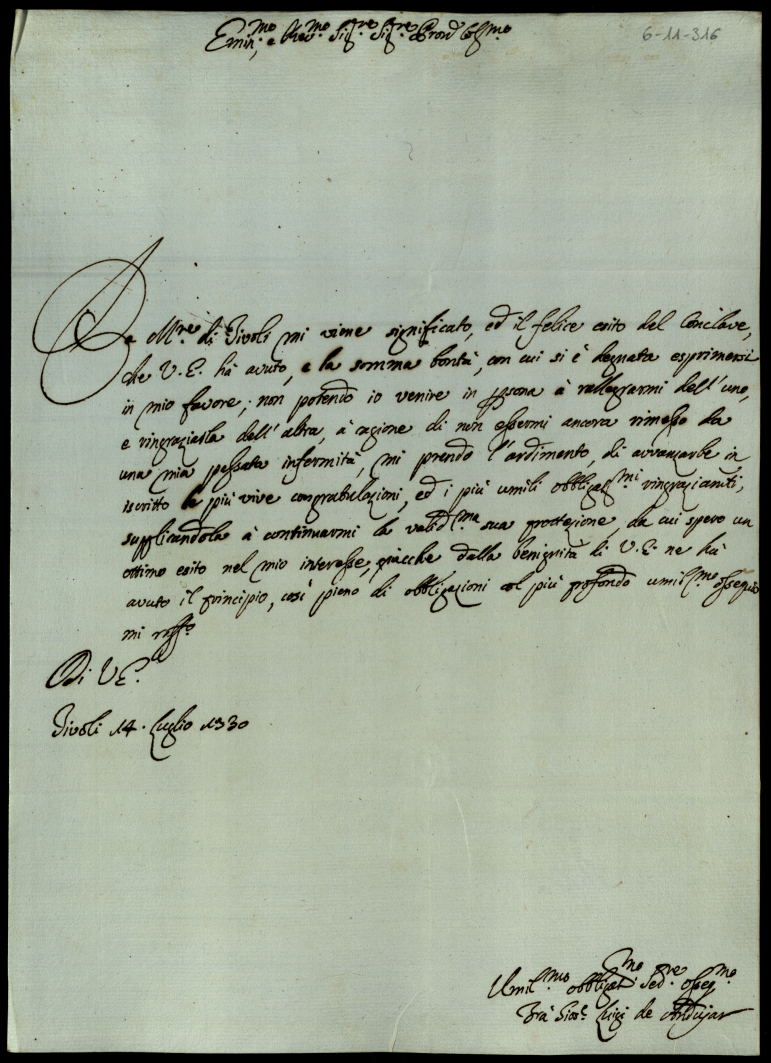 Emin.mo e Rev.mo Sig.re Sig.re Pron Col.mo
6-11-316
Da M.re di Tivoli mi viene significato, ed il felice esito del Conclave,
che V. E. hà avuto, e la somma bontà, con cui si è degnata esprimersi
in mio favore; non potendo io venire in psona à rallegrarmi dell'uno,
e ringraziarla dell'altra, à cagione di non essermi ancora rimesso da
una mia passata infermità, mi prendo l'ardimento, di avvanzarle in
iscritto le più vive congratulazioni, ed i più umili obbligat.mi ringraziam.ti;
supplicandola à continuarmi la valid.ma sua protezione, da cui spero un
ottimo esito nel mio interesse, giacche dalla benignità di V. E. ne hà
avuto il principio, così pieno di obbligazioni col più profondo umil.mo ossequio
mi raff.o
Di V E.
Tivoli 14. Luglio 1730
Umil.mo obbligat.mo Ser.re osseq.mo
Frà Gio: Luigi de Andujar